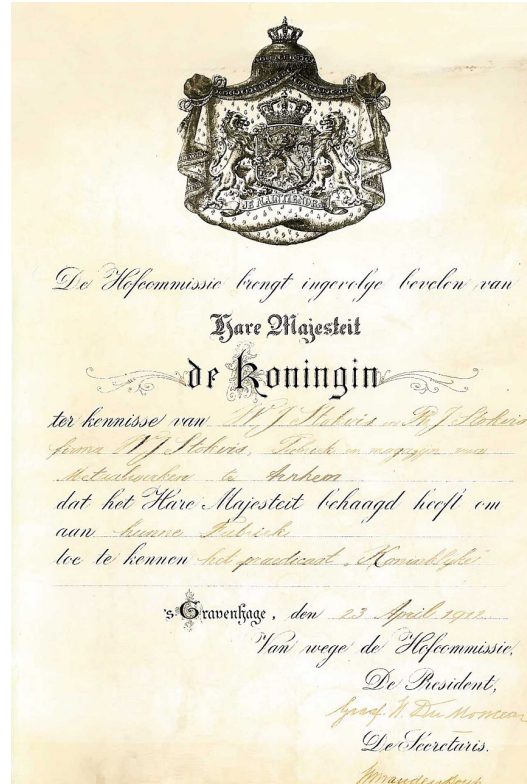 JE MAINTIENDRAI
De Hofcommissie brengt ingevolge bevelen van
Hare Majesteit
de Koningin
ter kennisse van W J Stokvis en Ph J Stokvis
firma W J Stokvis, Fabriek en magazijn van
Metaalwerken te Arnhem
dat het Hare Majesteit behaagd heeft om
aan hunne Fabriek
toe te kennen het praedicaat „Koninklijke”
's Gravenhage, den 23 April 1912
Van wege de Hofcommissie,
De President,
Graaf W. Du Monceau
De Secretaris.